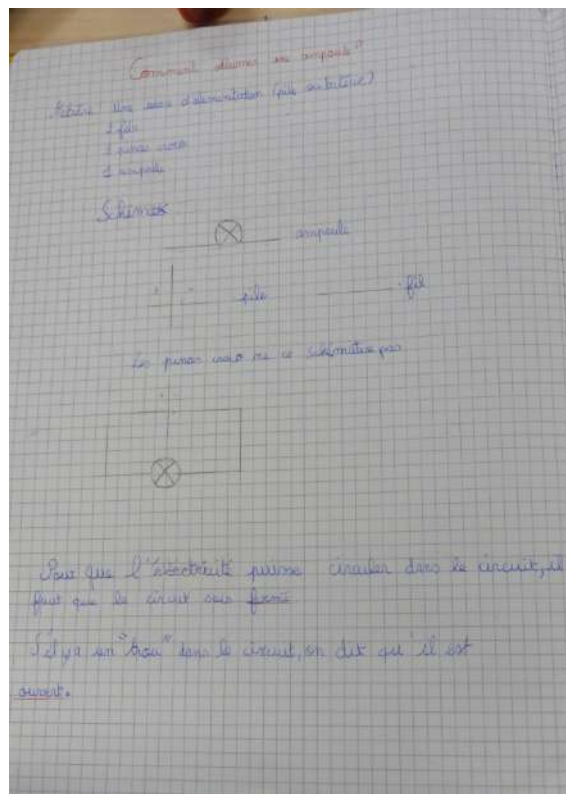 Comment allumer une ampoule"
Matériel Une source d'alimentation (pile ou batterie)
2 fils
2 pinces croco
1 ampoule
Schémas
ampoule
+ -
pile
fil
Les pinces croco ne ce schématise pas
+ -
Pour que l'électricité puisse circuler dans le circuit, il
faut que le circuit sois fermé
S'il y a un "trou" dans le circuit, on dit qu'il est
ouvert.